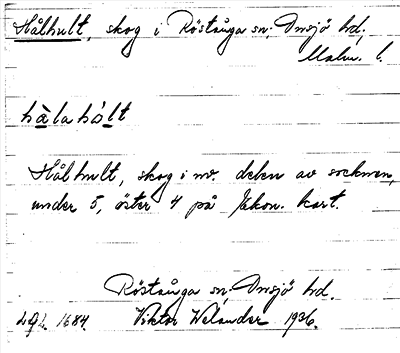 Hålhult, skog i Röstånga sn, Onsjö hd,
Malm. l.
hålahólt
Hålhult, skog i nv. delen av socknen,
under 5, öster 4 på Ekon. kart.
Röstånga sn, Onsjö hd.
Lgl. 1684. Viktor Welander 1936.